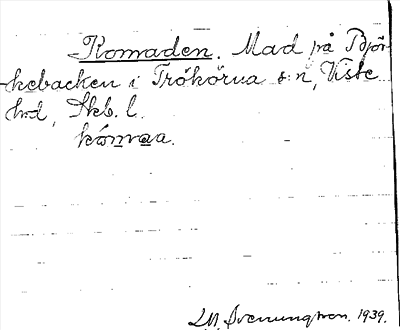 Komaden. Mad på Björ-
kebacken i Trökörna s:n, Viste
hrd, Skb. l.
kómaa.
Svenungsson. 1939.